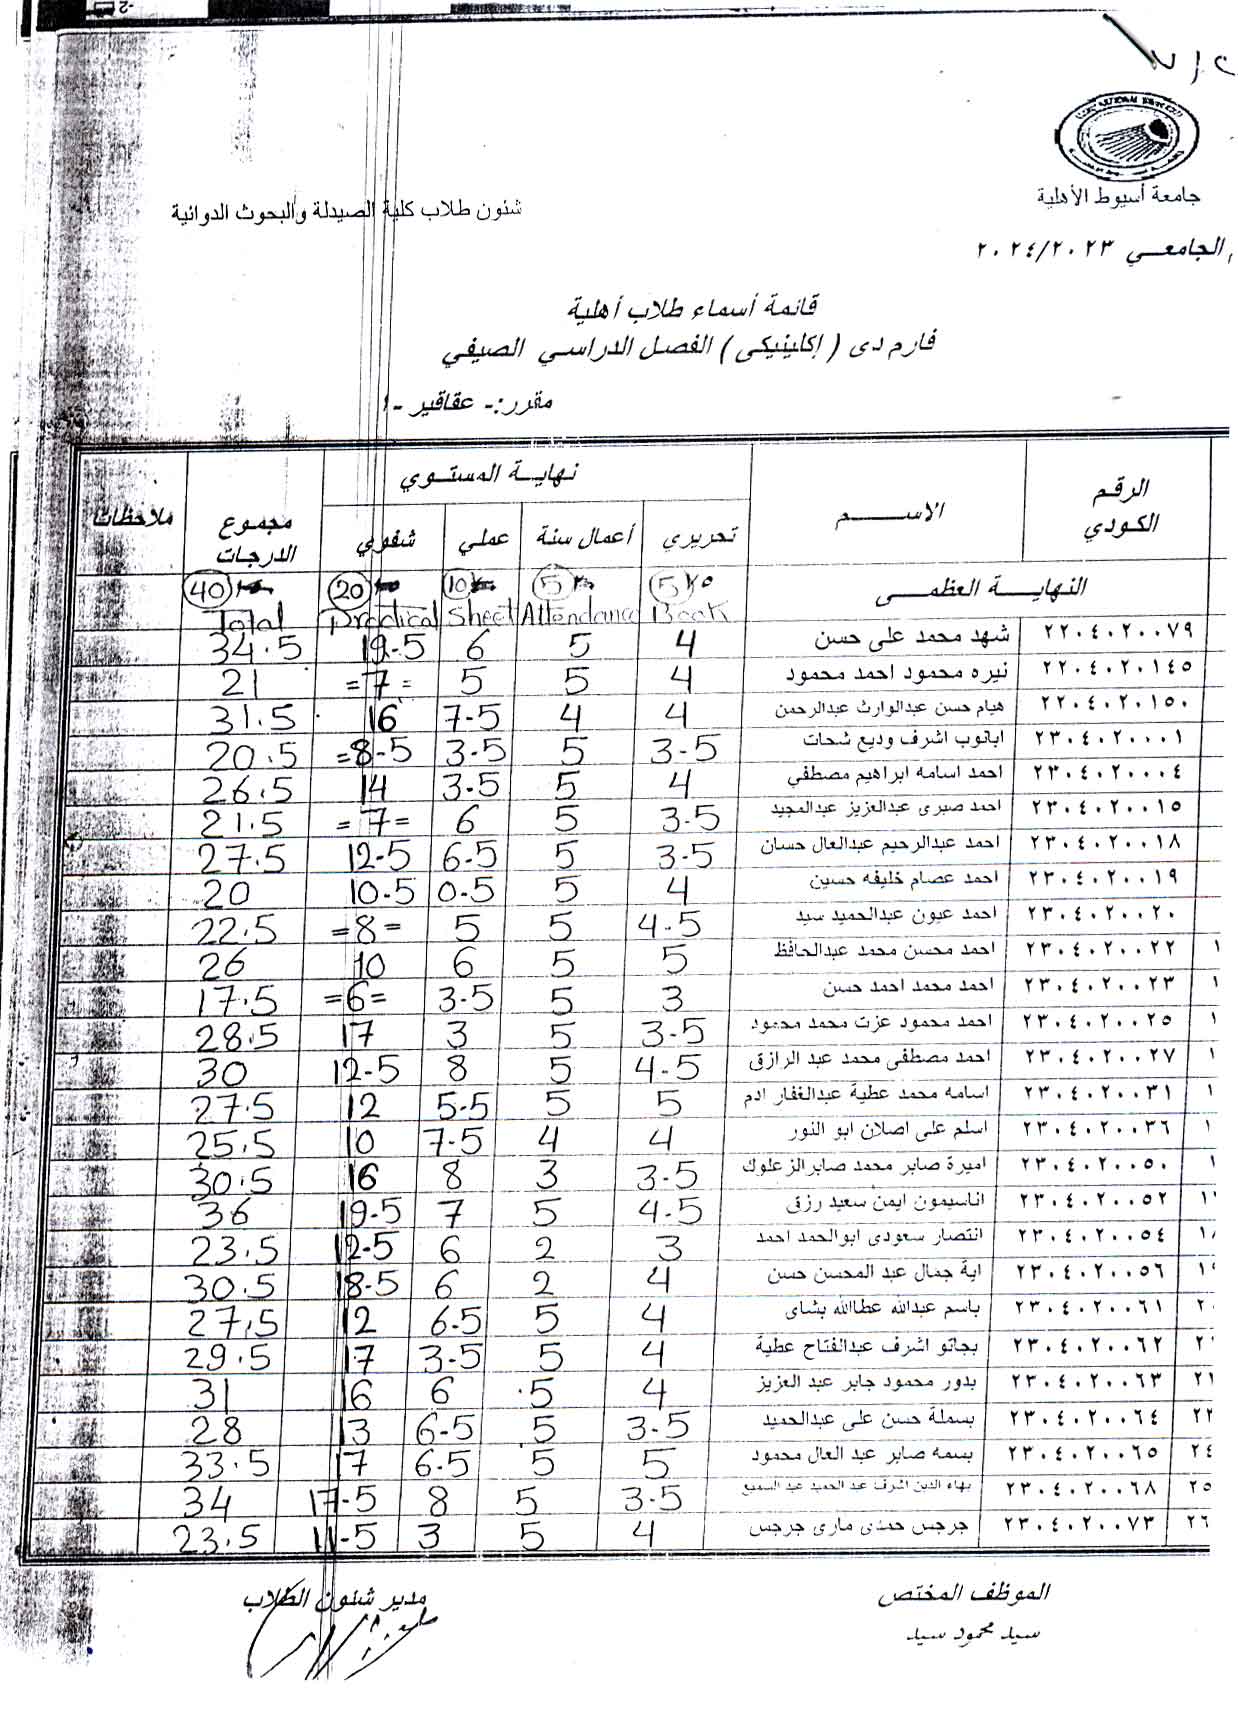 ٢/٧
جامعة أسيوط الأهلية
شئون طلاب كلية الصيدلة والبحوث الدوائية
الجامعي ٢٠٢٤/٢٠٢٣
قائمة أسماء طلاب أهلية
فارم دى ( إكلينيكى ) الفصل الدراسي الصيفي
مقرر:- عقاقير -١
الرقم الكودي الاســـم نهاية المستوي مجموع الدرجات ملاحظات
تحريري أعمال سنة عملي شفوي
النهاية العظمى 5 5 10 20 40
Book Attendance Sheet Practical Total
٢٢٠٤٠٢٠٠٧٩ شهد محمد على حسن 4 5 6 19.5 34.5
٢٢٠٤٠٢٠١٤٥ نيره محمود احمد محمود 4 5 5 =7= 21
٢٢٠٤٠٢٠١٥٠ هيام حسن عبدالوارث عبدالرحمن 4 4 7.5 16 31.5
٢٣٠٤٠٢٠٠٠١ ابانوب اشرف وديع شحات 3.5 5 3.5 =8.5 20.5
٢٣٠٤٠٢٠٠٠٤ احمد اسامه ابراهيم مصطفي 4 5 3.5 14 26.5
٢٣٠٤٠٢٠٠١٥ احمد صبرى عبدالعزيز عبدالمجيد 3.5 5 6 =7= 21.5
٢٣٠٤٠٢٠٠١٨ احمد عبدالرحيم عبدالعال حسان 3.5 5 6.5 12.5 27.5
٢٣٠٤٠٢٠٠١٩ احمد عصام خليفه حسين 4 5 0.5 10.5 20
٢٣٠٤٠٢٠٠٢٠ احمد عيون عبدالحميد سيد 4.5 5 5 =8= 22.5
١ ٢٣٠٤٠٢٠٠٢٢ احمد محسن محمد عبدالحافظ 5 5 6 10 26
١ ٢٣٠٤٠٢٠٠٢٣ احمد محمد احمد حسن 3 5 3.5 =6= 17.5
١ ٢٣٠٤٠٢٠٠٢٥ احمد محمود عزت محمد محمود 3.5 5 3 17 28.5
١ ٢٣٠٤٠٢٠٠٢٧ احمد مصطفى محمد عبد الرازق 4.5 5 8 12.5 30
١ ٢٣٠٤٠٢٠٠٣١ اسامه محمد عطية عبدالغفار ادم 5 5 5.5 12 27.5
١ ٢٣٠٤٠٢٠٠٣٦ اسلم على اصلان ابو النور 4 4 7.5 10 25.5
١ ٢٣٠٤٠٢٠٠٥٠ اميرة صابر محمد صابرالزعلوك 3.5 3 8 16 30.5
١ ٢٣٠٤٠٢٠٠٥٢ اناسيمون ايمن سعيد رزق 4.5 5 7 19.5 36
١٨ ٢٣٠٤٠٢٠٠٥٤ انتصار سعودى ابوالحمد احمد 3 2 6 12.5 23.5
١٩ ٢٣٠٤٠٢٠٠٥٦ اية جمال عبد المحسن حسن 4 2 6 18.5 30.5
٢٠ ٢٣٠٤٠٢٠٠٦١ باسم عبدالله عطاالله بشاى 4 5 6.5 12 27.5
٢ ٢٣٠٤٠٢٠٠٦٢ بجاتو اشرف عبدالفتاح عطية 4 5 3.5 17 29.5
٢ ٢٣٠٤٠٢٠٠٦٣ بدور محمود جابر عبد العزيز 4 5 6 16 31
٢٣ ٢٣٠٤٠٢٠٠٦٤ بسملة حسن على عبدالحميد 3.5 5 6.5 13 28
٢٤ ٢٣٠٤٠٢٠٠٦٥ بسمه صابر عبد العال محمود 5 5 6.5 17 33.5
٢٥ ٢٣٠٤٠٢٠٠٦٨ بهاء الدين اشرف عبد الحميد عبد السميع 3.5 5 8 17.5 34
٢٦ ٢٣٠٤٠٢٠٠٧٣ جرجس حمدى مارى جرجس 4 5 3 11.5 23.5
الموظف المختص مدير شئون الطلاب
سيد محمود سيد